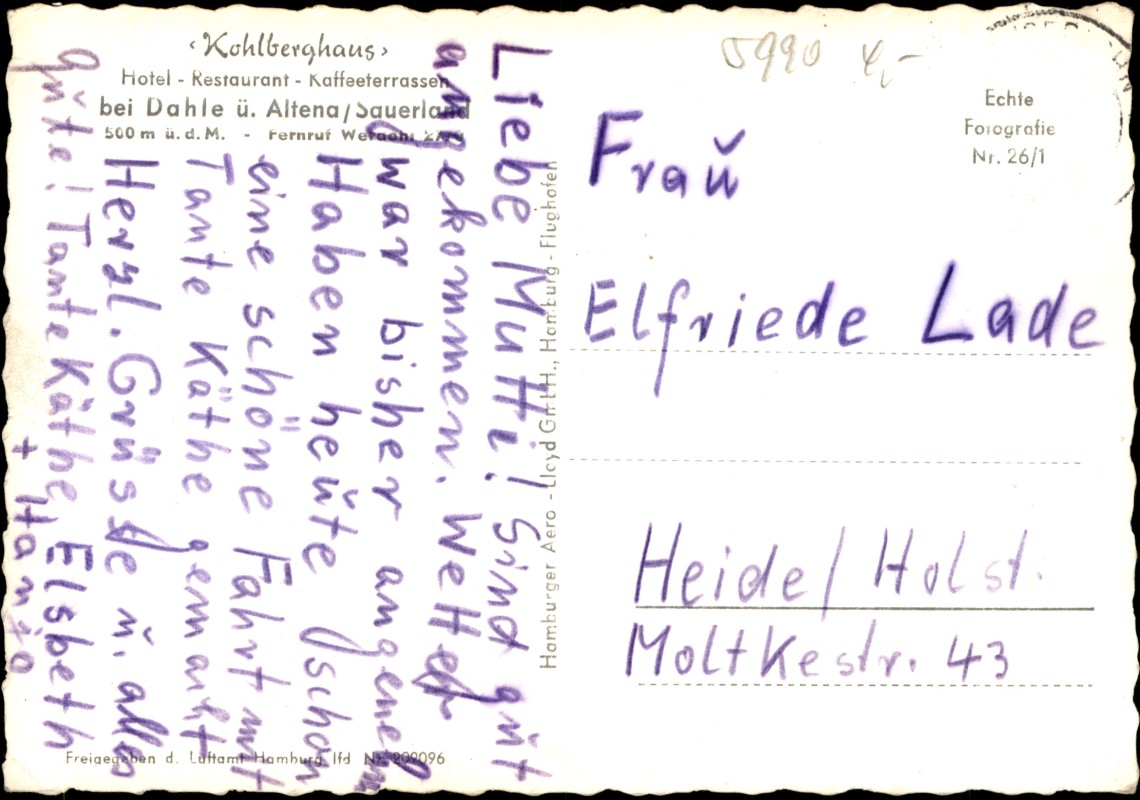 ‹Kohlberghaus›
Hotel - Restaurant - Kaffeeterrassen
bei Dahle ü. Altena/Sauerland
500 m ü. d. M. - Fernruf
Liebe Mutti! Sind gut
angekommen. Wetter
war bisher angenehm
Haben heute schon
eine schöne Fahrt mit
Tante Käthe gemacht
Herzl. Grüße u. alles
gute! Tante Käthe Elsbeth
+ Hanjo
Freigegeben d. Luftamt Hamburg lfd Nr. 209096
Hamburger Aero - Lloyd GmbH., Hamburg - Flughafen
5990 4,-
Echte
Fotografie
Nr. 26/1
Frau
Elfriede Lade
Heide/Holst.
Moltkestr. 43